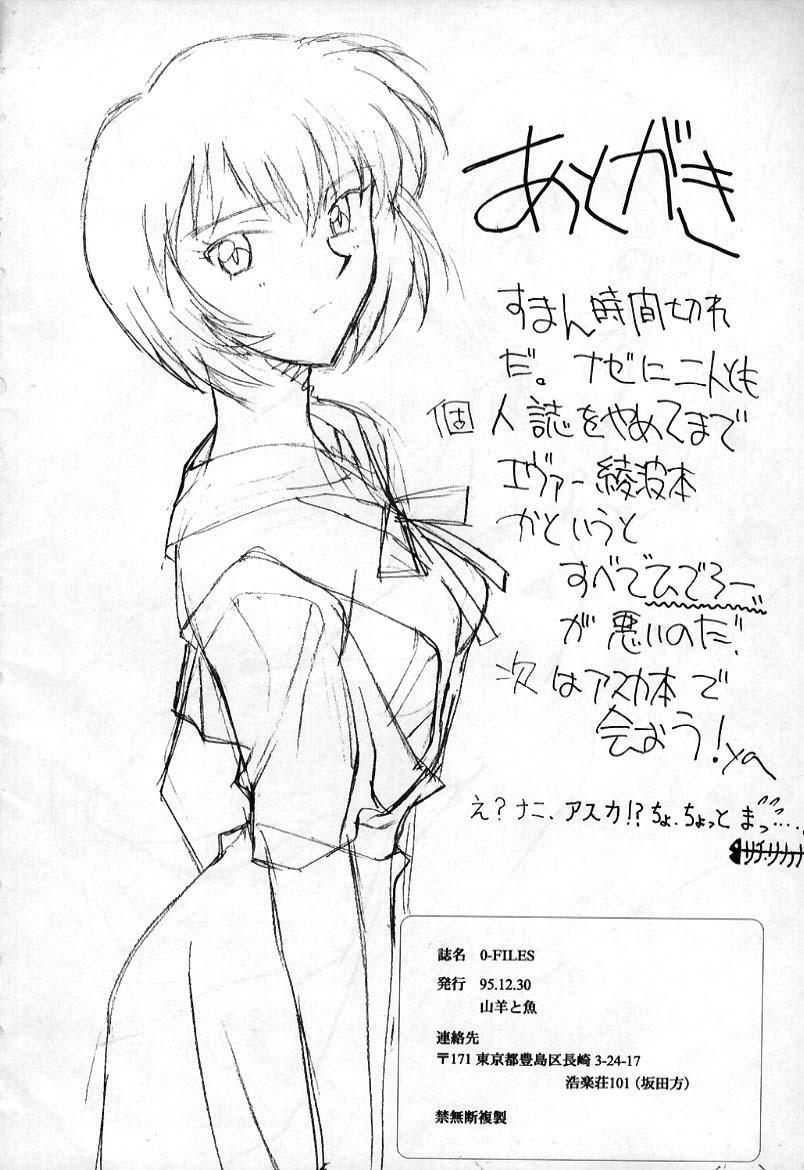 あとがき
すまん時間切れ
だ。ナゼに二人とも
個人誌をやめてまで
エヴァー綾波本
かというと
すべてひでろー
が悪いのだ!
次はアスカ本で
会おう!ya
え?ナニ、アスカ!?ちょ、ちょっとまっ……
誌名 0-FILES
発行 95.12.30
山羊と魚
連絡先
〒171 東京都豊島区長崎 3-24-17
浩楽荘101（坂田方）
禁無断複製